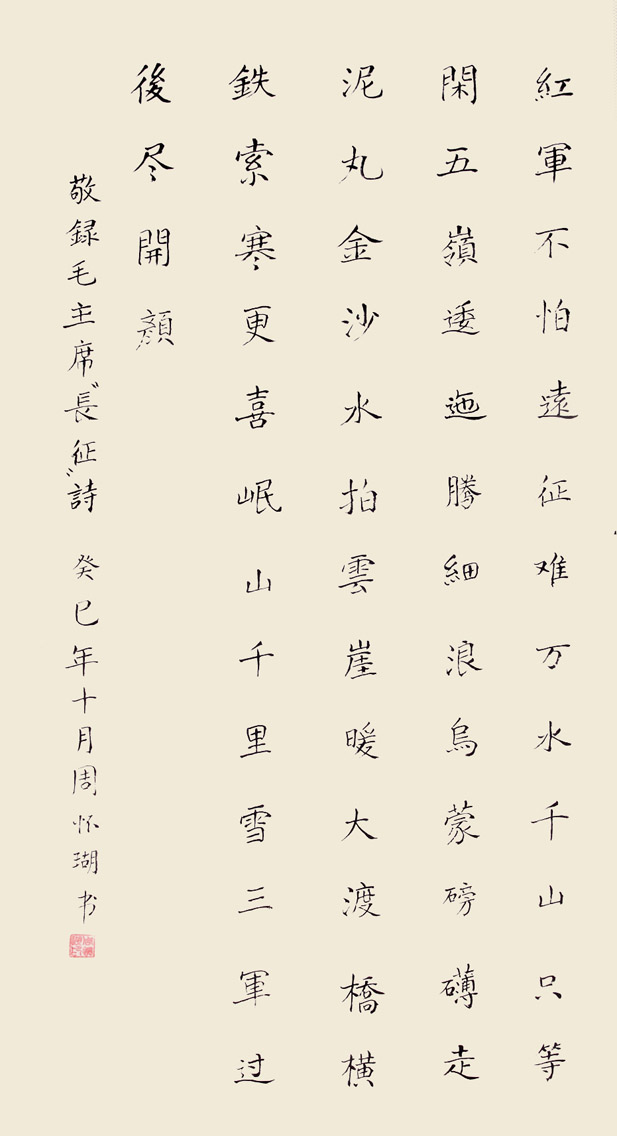 紅軍不怕遠征难万水千山只等
閑五嶺逶迤騰細浪烏蒙磅礴走
泥丸金沙水拍雲崖暖大渡橋横
鉄索寒更喜岷山千里雪三軍过
後尽開顔
敬録毛主席〝長征〞詩 癸巳年十月周怀瑚书